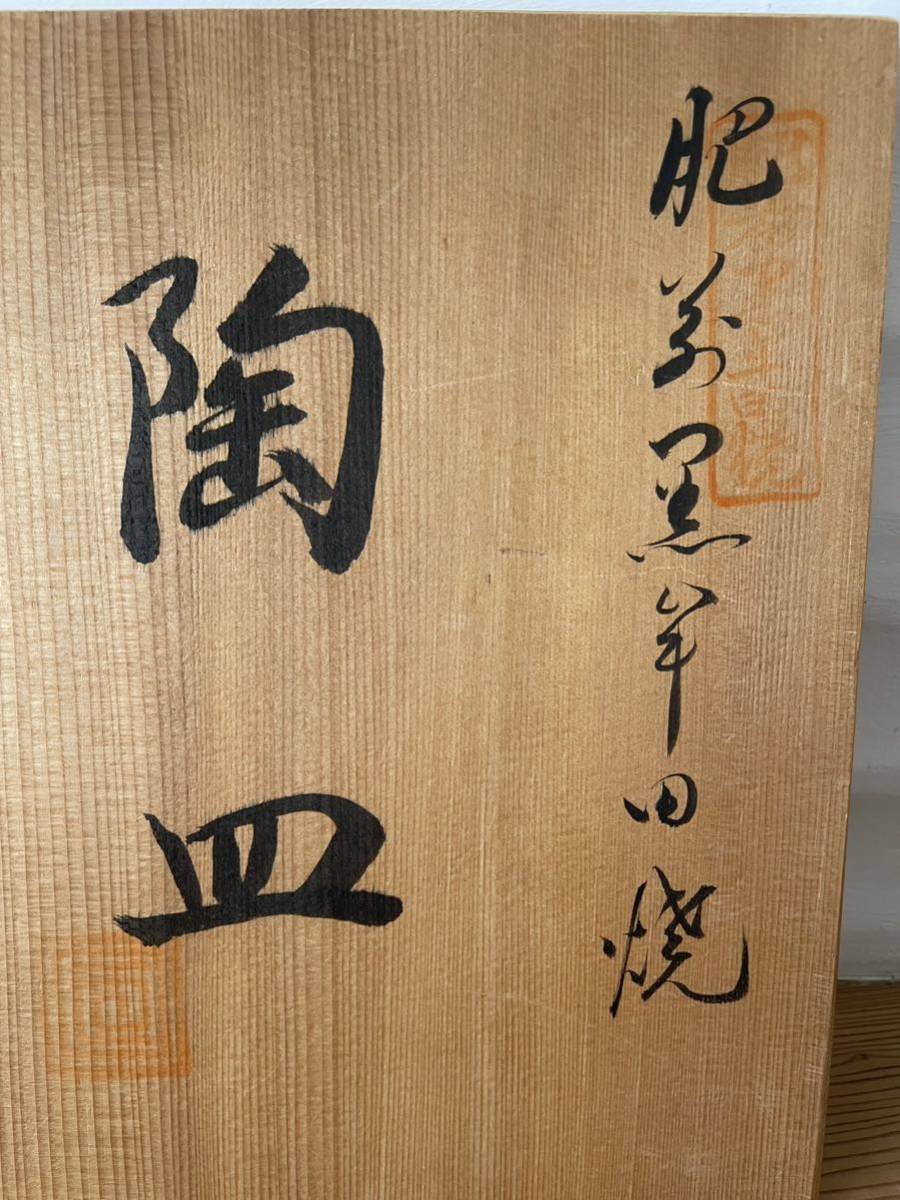 肥前黒牟田焼
陶皿